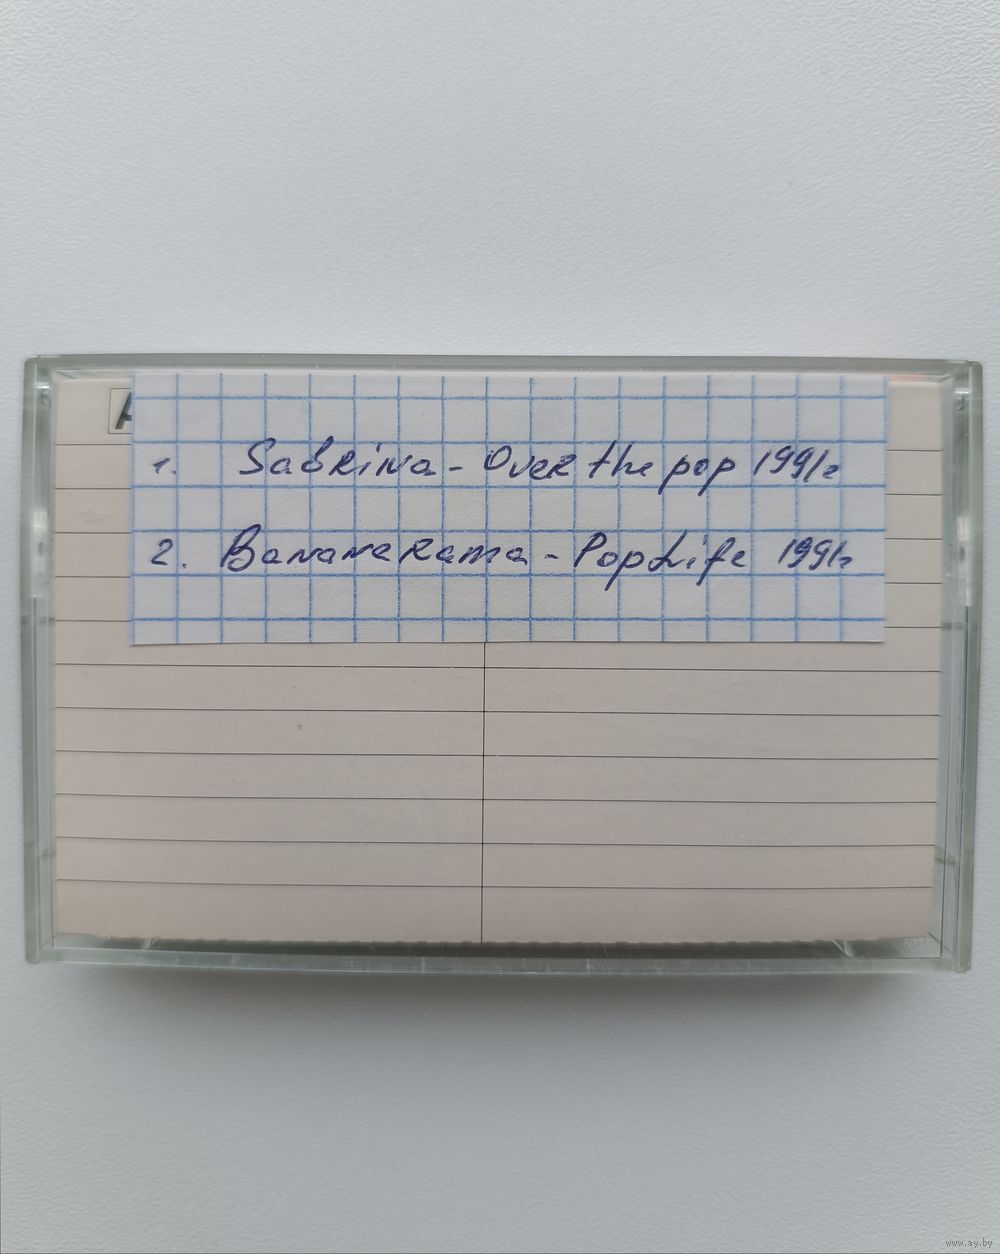 A
1. Sabrina - Over the pop 1991г
2. Bananarama - Pop Life 1991г
www.ay.by